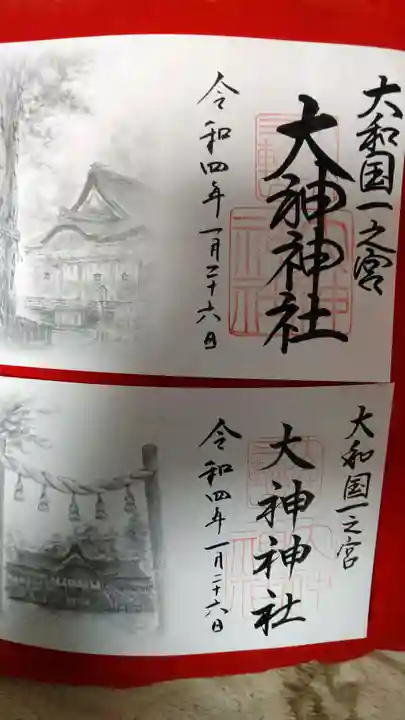 大和国一之宮
大神神社
令和四年一月二十六日
大和国一之宮
大神神社
令和四年一月二十六日